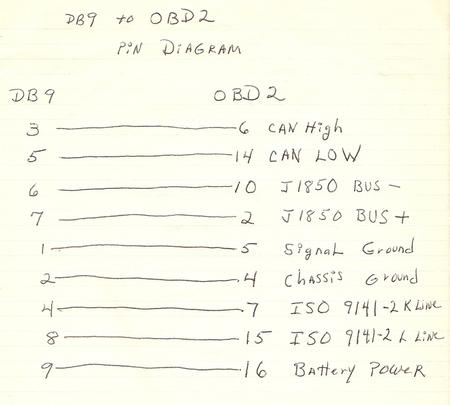 DB9 to OBD2
PIN DIAGRAM
DB9 OBD2
3 6 CAN High
5 14 CAN LOW
6 10 J1850 BUS -
7 2 J1850 BUS +
1 5 Signal Ground
2 4 Chassis Ground
4 7 ISO 9141-2 K Line
8 15 ISO 9141-2 L Line
9 16 Battery Power